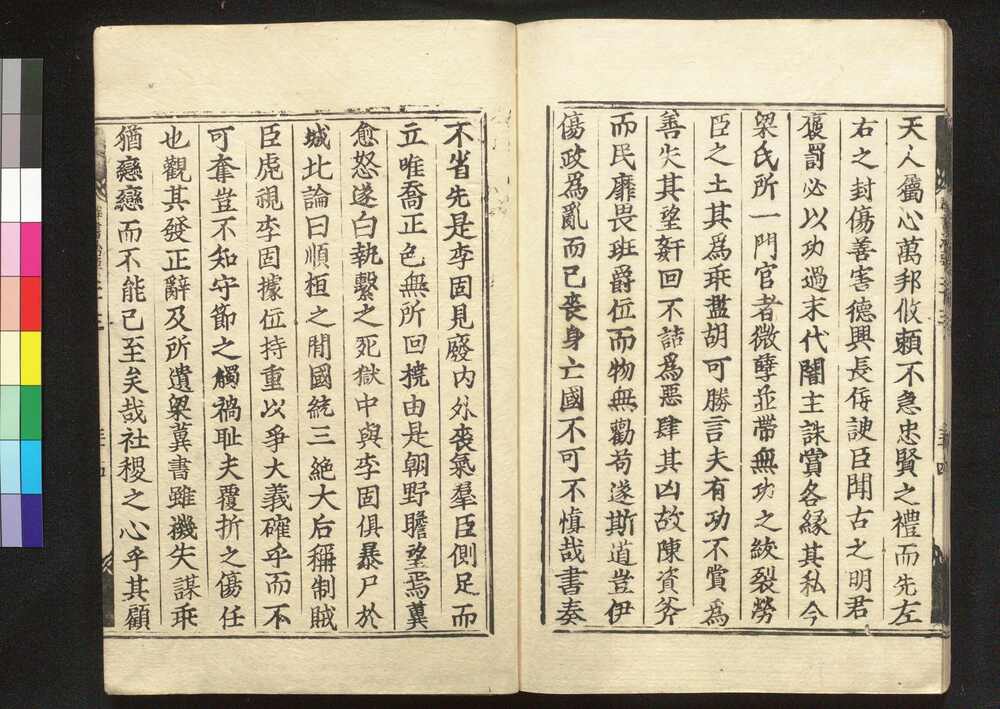 天人屬心萬邦攸賴不急忠賢之禮而先左
右之封傷善害德興長佞諛臣聞古之明君
襃罰必以功過末代闇主誅賞各緣其私今
梁氏所一門宦者微孽並帶無功之紱裂勞
臣之土其爲乖盭胡可勝言夫有功不賞爲
善失其望姧回不詰爲惡肆其凶故陳資斧
而民靡畏班爵位而物無勸苟遂斯道豈伊
傷政爲亂而已喪身亡國不可不慎哉書奏
不省先是李固見廢内外喪氣羣臣側足而
立唯喬正色無所回撓由是朝野瞻望焉冀
愈怒遂白執繫之死獄中與李固俱暴尸於
城北論曰順桓之間國統三絶大后稱制賊
臣虎視李固據位持重以爭大義確乎而不
可奪豈不知守節之觸禍耻夫覆折之傷任
也觀其發正辭及所遺梁冀書雖機失謀乖
猶戀戀而不能已至矣哉社稷之心乎其顧